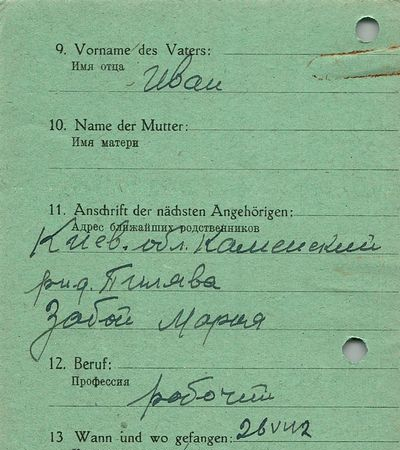 9. Vorname des Vaters:
Имя отца
Иван
10. Name der Mutter:
Имя матери
11. Anschrift der nächsten Angehörigen:
Адрес ближайших родственников
Киев. обл. Каменский
Пилява
Забой Мария
12. Beruf:
Профессия
рабочий
13 Wann und wo gefangen: